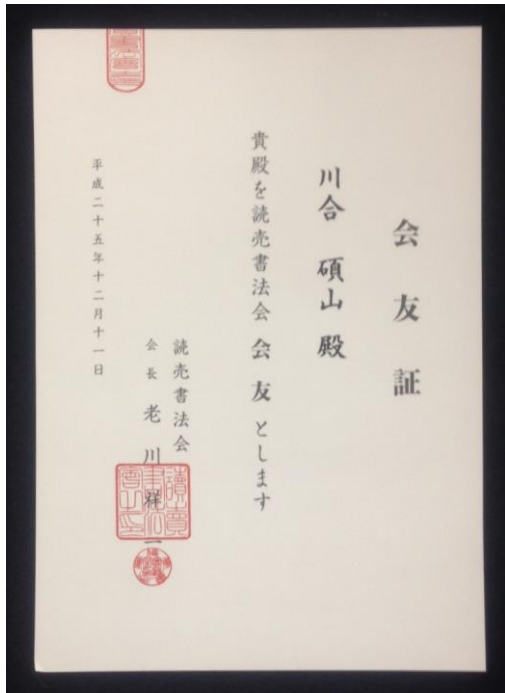 会友証
川合 碩山 殿
貴殿を読売書法会会友とします
読売書法会
会長 老川祥一
平成二十五年十二月十一日